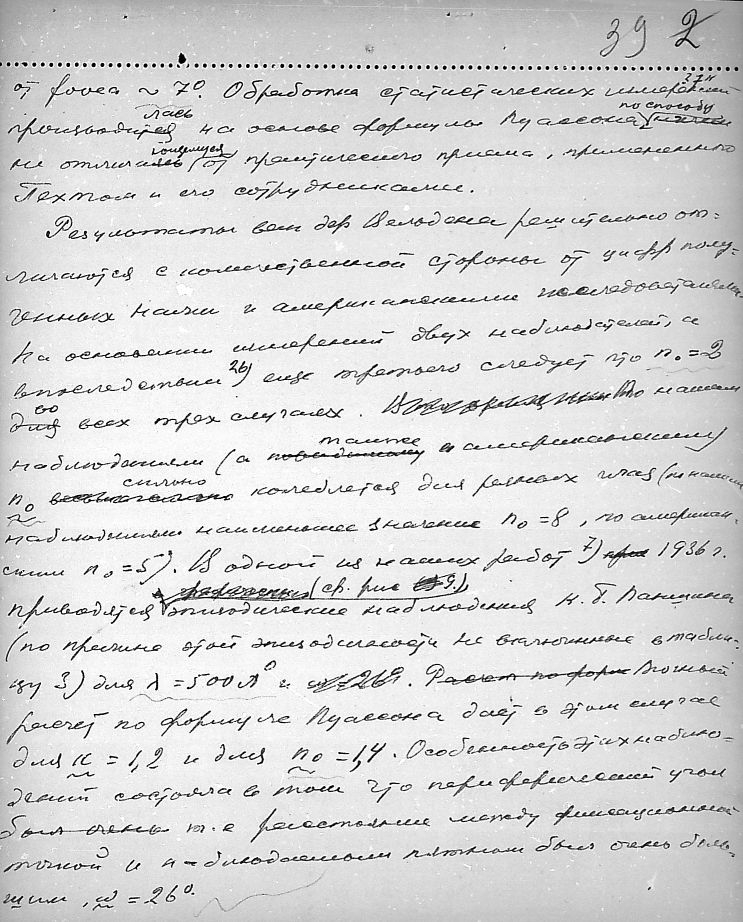 39 2
от fovea ~ 7°. Обработка статистических измерений 27и
лась по способу
производится на основе формулы Пуассона
не отличаясь гонщемуся от практического приема, примененного
Гехтом и его сотрудниками.
Результаты ван дер Вельдена решительно от-
личаются с количественной стороны от цифр полу-
ченных нами и американскими исследователями
На основании измерений двух наблюдателей, а
впоследствии 26) еще третьего следует что n₀ = 2
во
для всех трех случаях. По нашим
также
наблюдениям (а повидимому и американским)
сильно
n₀ колеблется для разных глаз (по нашим
наблюдениям наименьшее значение n₀ = 8, по американ-
ским n₀ = 5). В одной из наших работ 7) при 1936 г.
(ср. рис 9.)
приводятся эпизодические наблюдения Н. Б. Паншина
(по причине этой эпизодичности не включенные в табли-
цу 3) для λ = 500 Å и ω = 26°. Расчет по форм Точный
расчет по формуле Пуассона дает в этом случае
для κ = 1,2 и для n₀ = 1,4. Особенность этих наблю-
дений состояла в том что периферический угол
был очень т.е расстояние между фиксационной
точкой и наблюдаемым пятном был очень боль-
шим, ω = 26°.